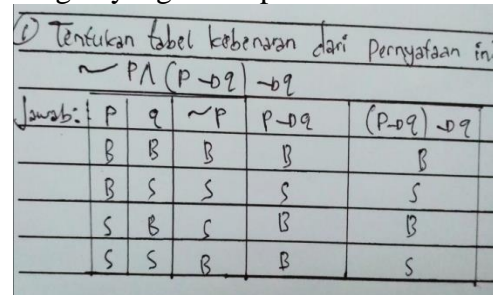 ① Tentukan tabel kebenaran dari Pernyataan in
~ P ∧ (P → q) → q
Jawab: P q ~P P → q (P → q) → q
B B B B B
B S S S S
S B S B B
S S B B S